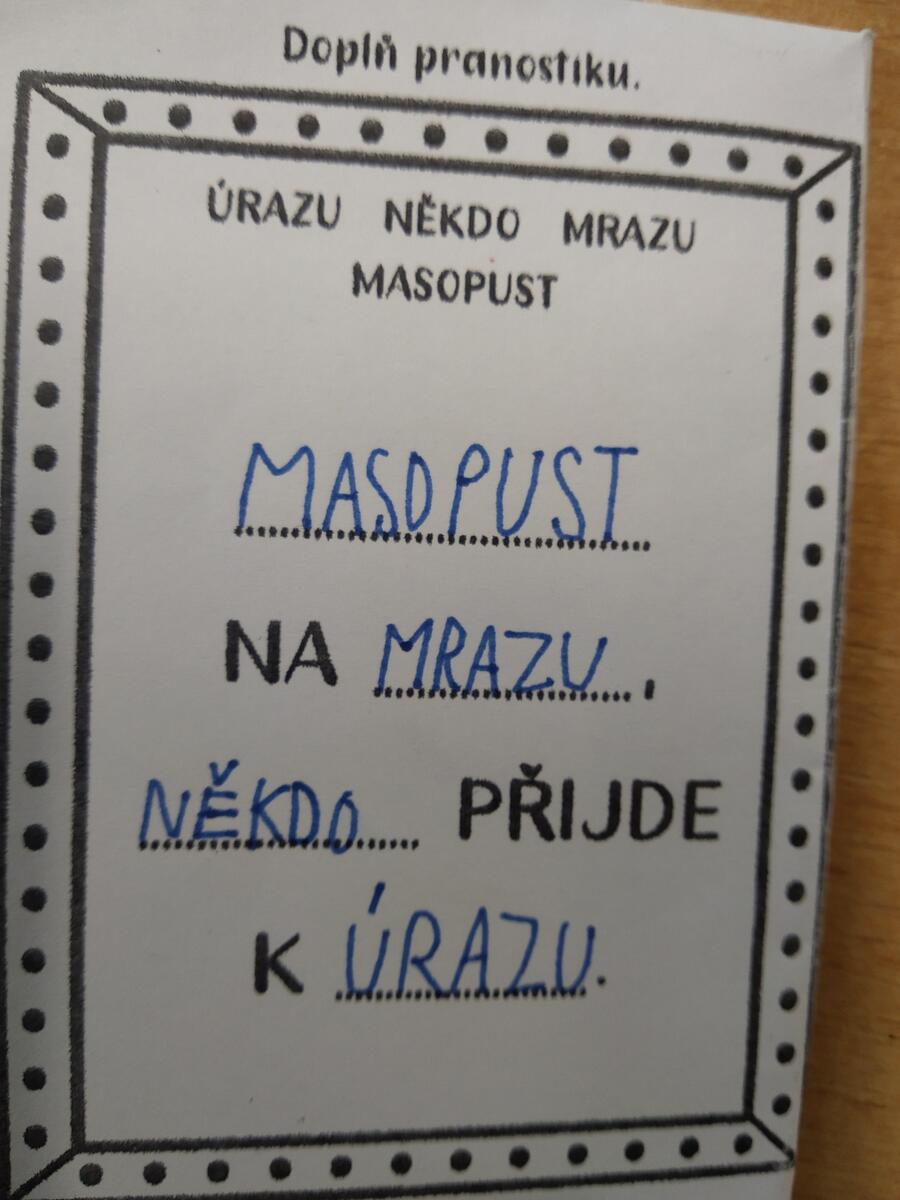 Doplň pranostiku.
ÚRAZU NĚKDO MRAZU
MASOPUST
MASOPUST
NA MRAZU,
NĚKDO PŘIJDE
K ÚRAZU.